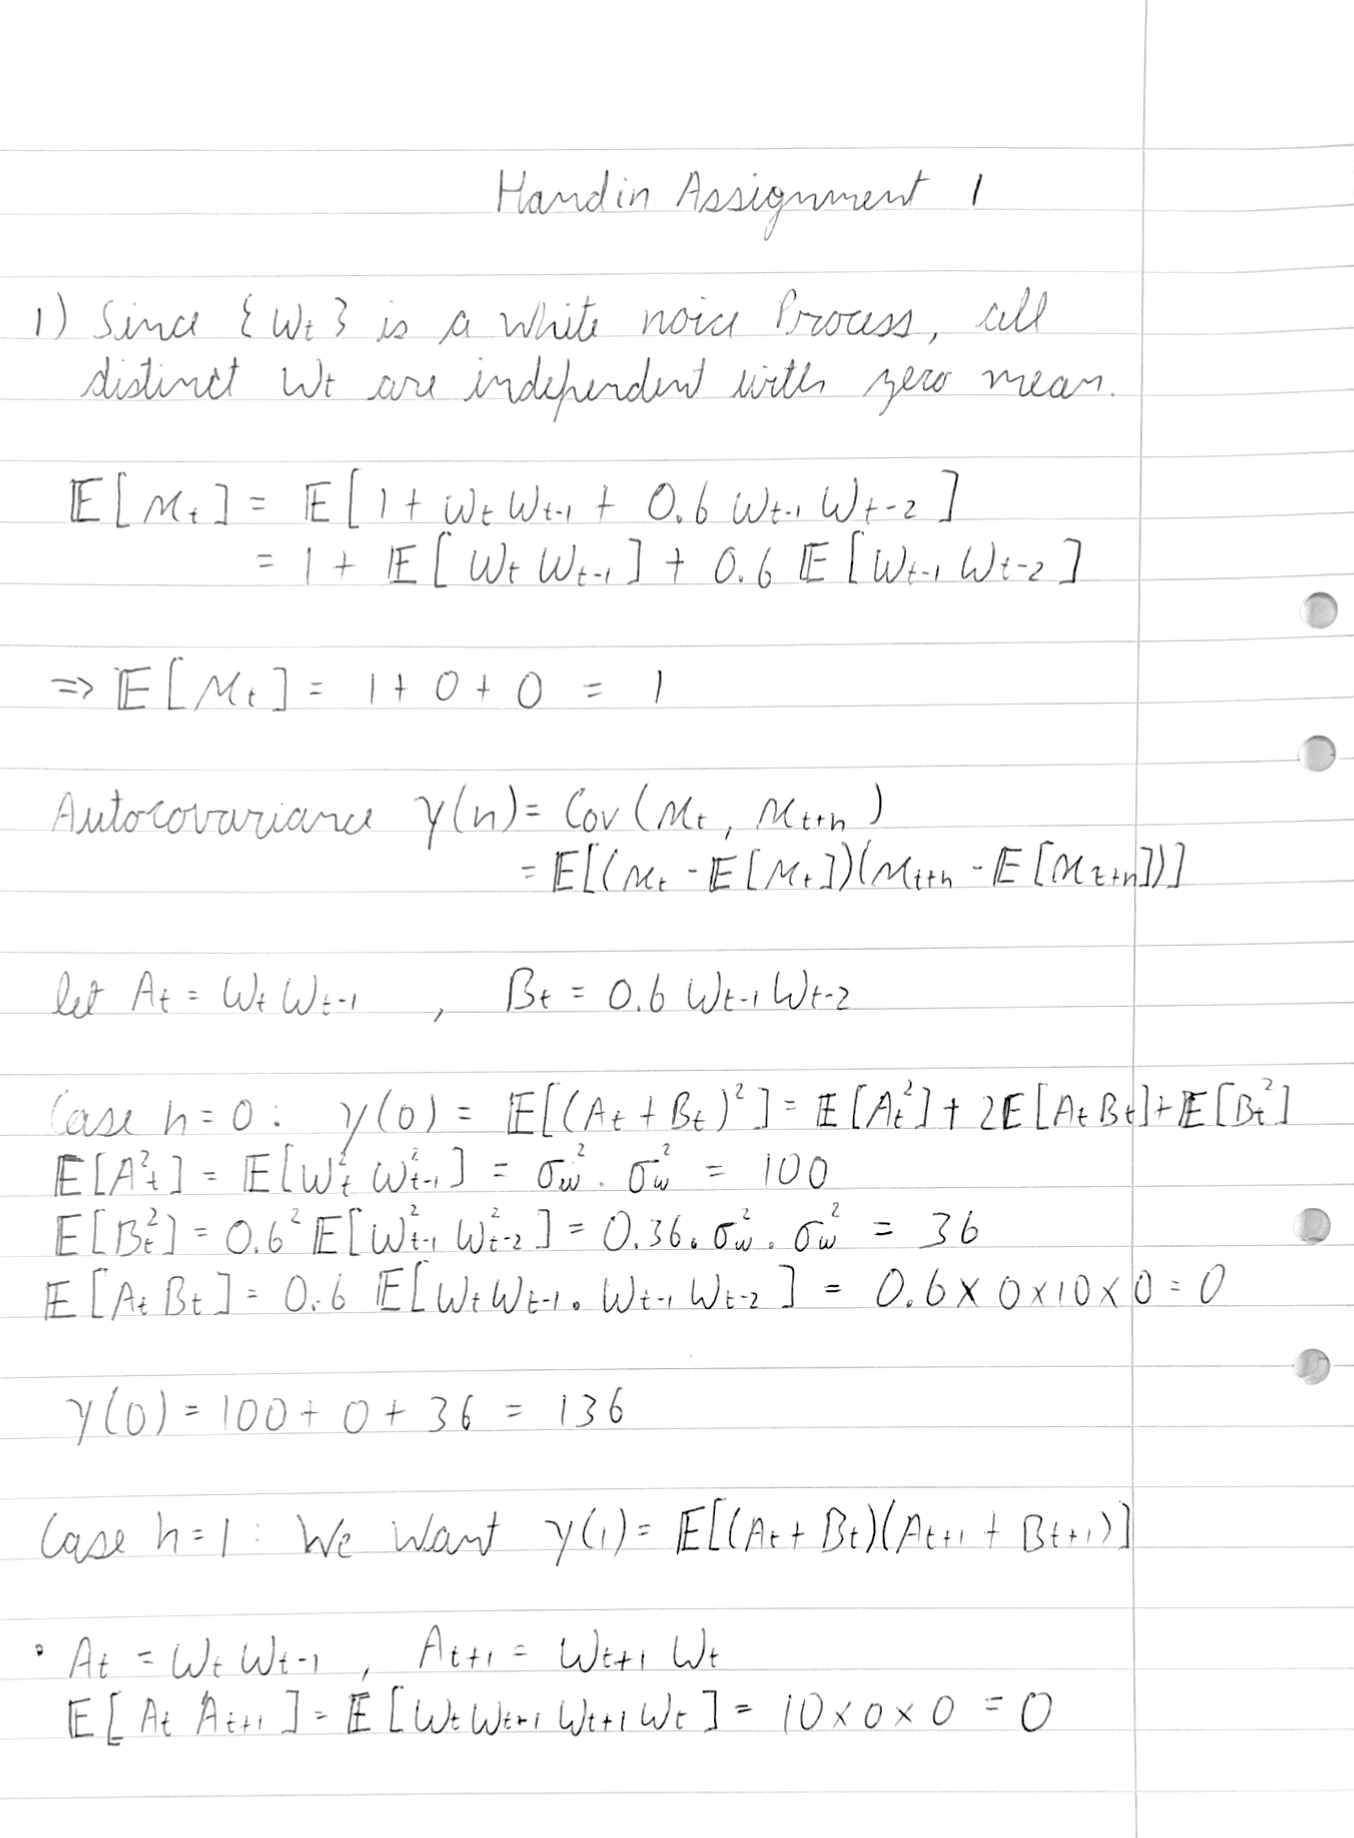 Handin Assignment 1
1) Since {Wt} is a white noice Process, all
distinct Wt are independent with zero mean.
𝔼[Xt] = 𝔼[1 + Wt Wt-1 + 0.6 Wt-1 Wt-2]
= 1 + 𝔼[Wt Wt-1] + 0.6 𝔼[Wt-1 Wt-2]
=> 𝔼[Xt] = 1 + 0 + 0 = 1
Autocovariance γ(h) = Cov(Xt, Xt+h)
= 𝔼[(Xt - 𝔼[Xt])(Xt+h - 𝔼[Xt+h])]
let At = Wt Wt-1 , Bt = 0.6 Wt-1 Wt-2
Case h=0: γ(0) = 𝔼[(At + Bt)²] = 𝔼[At²] + 2𝔼[At Bt] + 𝔼[Bt²]
𝔼[A²t] = 𝔼[Wt² Wt-1²] = σw² . σw² = 100
𝔼[Bt²] = 0.6² 𝔼[Wt-1² Wt-2²] = 0.36 . σw² . σw² = 36
𝔼[At Bt] = 0.6 𝔼[Wt Wt-1 . Wt-1 Wt-2] = 0.6 × 0 × 10 × 0 = 0
γ(0) = 100 + 0 + 36 = 136
Case h=1: We Want γ(1) = 𝔼[(At + Bt)(At+1 + Bt+1)]
• At = Wt Wt-1 , At+1 = Wt+1 Wt
𝔼[At At+1] = 𝔼[Wt Wt-1 Wt+1 Wt] = 10 × 0 × 0 = 0